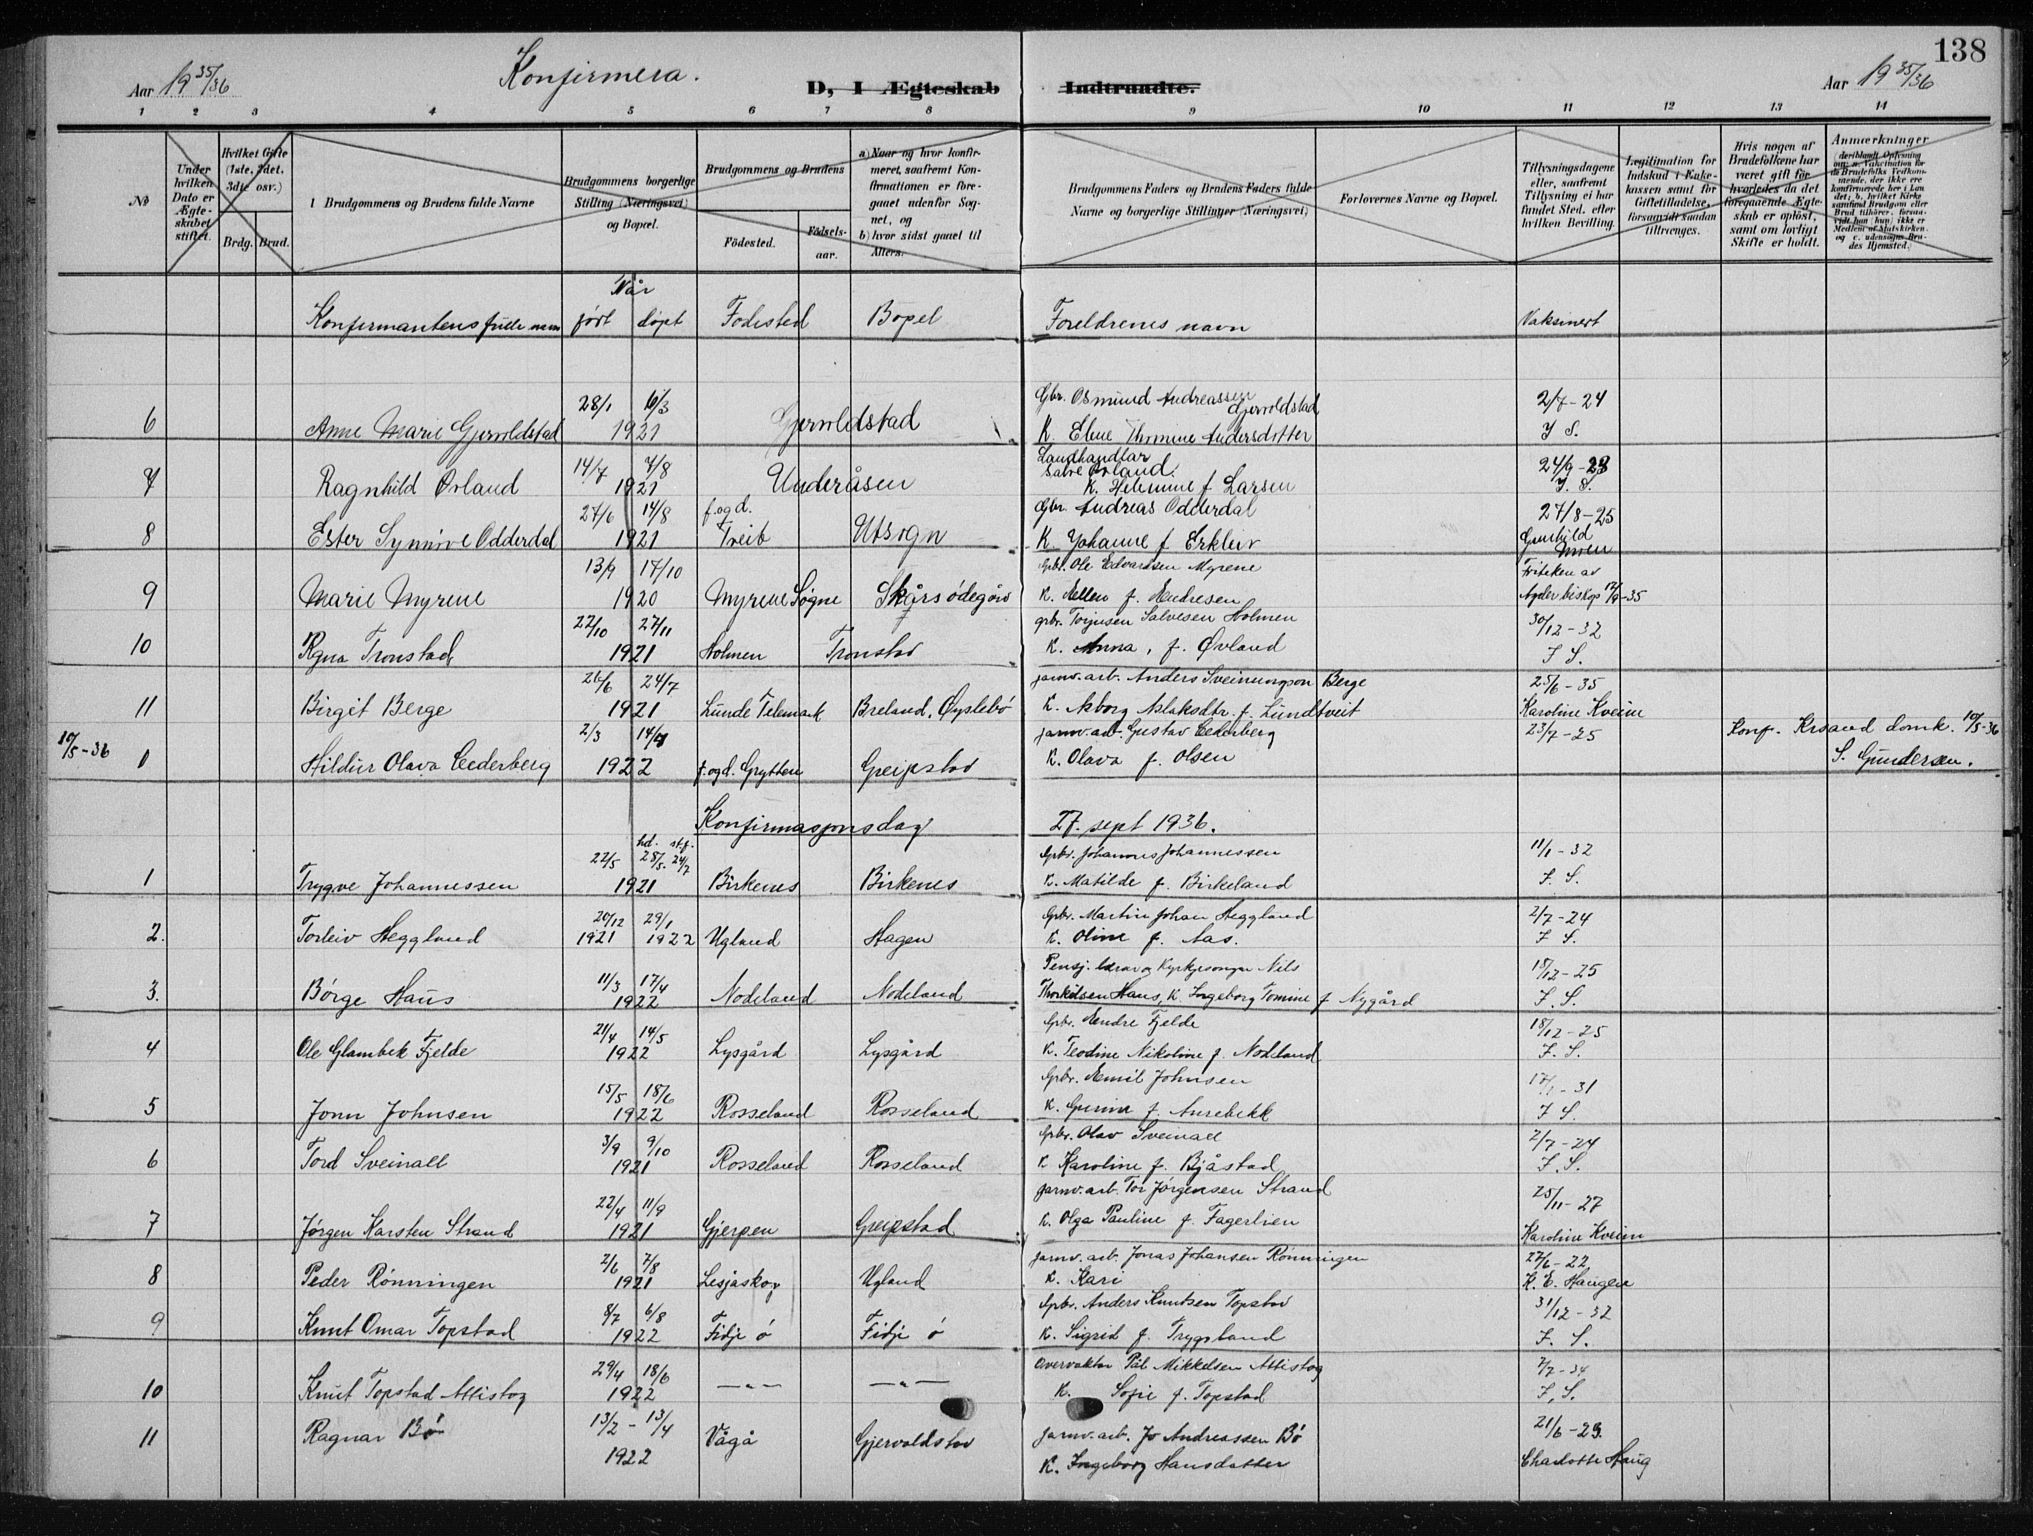 138
Aar 19 35/36
Konfirmera.
D, I Ægteskab Indtraadte.
Aar 19 35/36
1 2 3 4 5 6 7 8 9 10 11 12 13 14
№
Under hvilken Dato er Ægteskabet stiftet.
Hvilket Gifte (1ste, 2det, 3die osv.)
Brdg. Brud.
1 Brudgommens og Brudens fulde Navne
Brudgommens borgerlige Stilling (Næringsvei) og Bopæl.
Brudgommens og Brudens
Födested.
Födsels-aar.
a) Naar og hvor konfirmeret, saafremt Konfirmationen er foregaaet udenfor Sognet, og
b) hvor sidst gaaet til Alters.
Brudgommens Faders og Brudens Faders fulde Navne og borgerlige Stillinger (Næringsvei)
Forlovernes Navne og Bopæl.
Tillysningsdagene eller, saafremt Tillysning ei har fundet Sted, efter hvilken Bevilling.
Legitimation for Indskud i Enkekassen samt for Giftetilladelse, forsaavidt saadan tiltrænges.
Hvis nogen af Brudefolkene har været gift før hvorledes da det foregaaende Ægteskab er opløst, samt om lovligt Skifte er holdt.
Anmærkninger
Når
Konfirmantens fulle navn født døpt Fødested Bopel Foreldrenes navn Vaksinert
28/1 6/3 Gbr. Osmund Andreassen Gjervoldstad 2/7-24
6 Anne Marie Gjervoldstad 1921 Gjervoldstad K. Elene Thomine Andersdotter J S.
14/7 7/8 Landhandlar Salve Ørland 24/9-23
7 Ragnhild Ørland 1921 Underåsen K. Helemine f Larsen J. S.
27/6 14/8 f. og d. Gbr Andreas Odderdal 27/8-25
8 Ester Synnøve Odderdal 1921 Treib Utsogn K Johanne f Erkleiv Gunhild Moen
13/9 17/10 Gbr. Ole Edvardsen Myrene Friteken av
9 Marie Myrene 1920 Myrene Søgne Skårsødegård K. Ellen f. Endresen Agder biskop 17/9-35
22/10 27/11 gbr. Torjusen Salvesen Holmen 30/12-32
10 Agna Tronstad 1921 Holmen Tronstad K. Anna, f. Øvland J S.
26/6 24/7 jarnv. arb. Anders Sveinungson Berge 25/6-35
11 Birgit Berge 1921 Lunde Telemark Breland, Øyslebø K. Asborg Aslaksdtr. f. Lundtveit Karoline Kveim
10/5-36 2/3 14/4 jarnv. arb. Gustav Cederberg 23/7-25 Konf. Krsand domk. 10/5-36
1 Hildur Olava Cederberg 1922 f. og d. Grytten Greipstad K. Olava f. Olsen S. Gundersen.
Konfirmasjonsdag 27. sept 1936.
22/5 hd. 28/5 st.f. 24/7 Gbr. Johannes Johannessen 11/1-32
1 Trygve Johannessen 1921 Birkenes Birkenes K. Matilde f. Birkeland J. S.
20/12 29/1 Gbr. Martin Johan Heggland 2/7-24
2. Torleiv Heggland 1921 1922 Ugland Hagen K. Oline f. Aas. J S.
11/3 17/4 Pensj. lærar og Kyrkjesongar Nils 18/12-25
3. Børge Haus 1922 Nodeland Nodeland Thorkilsen Haus, K. Ingeborg Tomine f Nygård J. S.
21/4 14/5 Gbr. Endre Fjelde 18/12-25
4 Ole Glambek Fjelde 1922 Lysgård Lysgård K. Teodine Nikoline f. Nodeland J. S.
15/5 18/6 Gbr. Emil Johnsen 17/1-31
5 Jonn Johnsen 1922 Rosseland Rosseland K. Gurina f. Aurebekk J S.
3/9 9/10 Gbr. Olav Sveinall 2/7-24
6 Tord Sveinall 1921 Rosseland Rosseland K Karoline f. Bjåstad J. S.
22/4 11/9 jarnv. arb. Tor Jørgensen Strand 25/11-27
7 Jørgen Karsten Strand 1921 Gjerpen Greipstad K. Olga Pauline f. Fagerlien Karoline Kveim
2/6 7/8 jarnv. arb. Jonas Johansen Rønningen 27/6-22
8 Peder Rønningen 1921 Lesjaskog Ugland K. Kari K. E. Haugen
8/7 6/8 Gbr. Anders Knutsen Topstad 31/12-32
9 Knut Omar Topstad 1922 Fidje ø Fidje ø K. Sigrid f. Trygsland J. S.
29/4 18/6 Overvaktar Pål Mikkelsen Attistog 7/7-34
10 Knut Topstad Attistog 1922 —〃— —〃— K. Sofie f. Topstad J. S.
13/2 - 13/4 jarnv. arb. Jo Andreassen Bø 21/6-23
11 Ragnar Bø 1922 Vågå Gjervoldstad K. Ingeborg Hansdatter Charlotte Haug